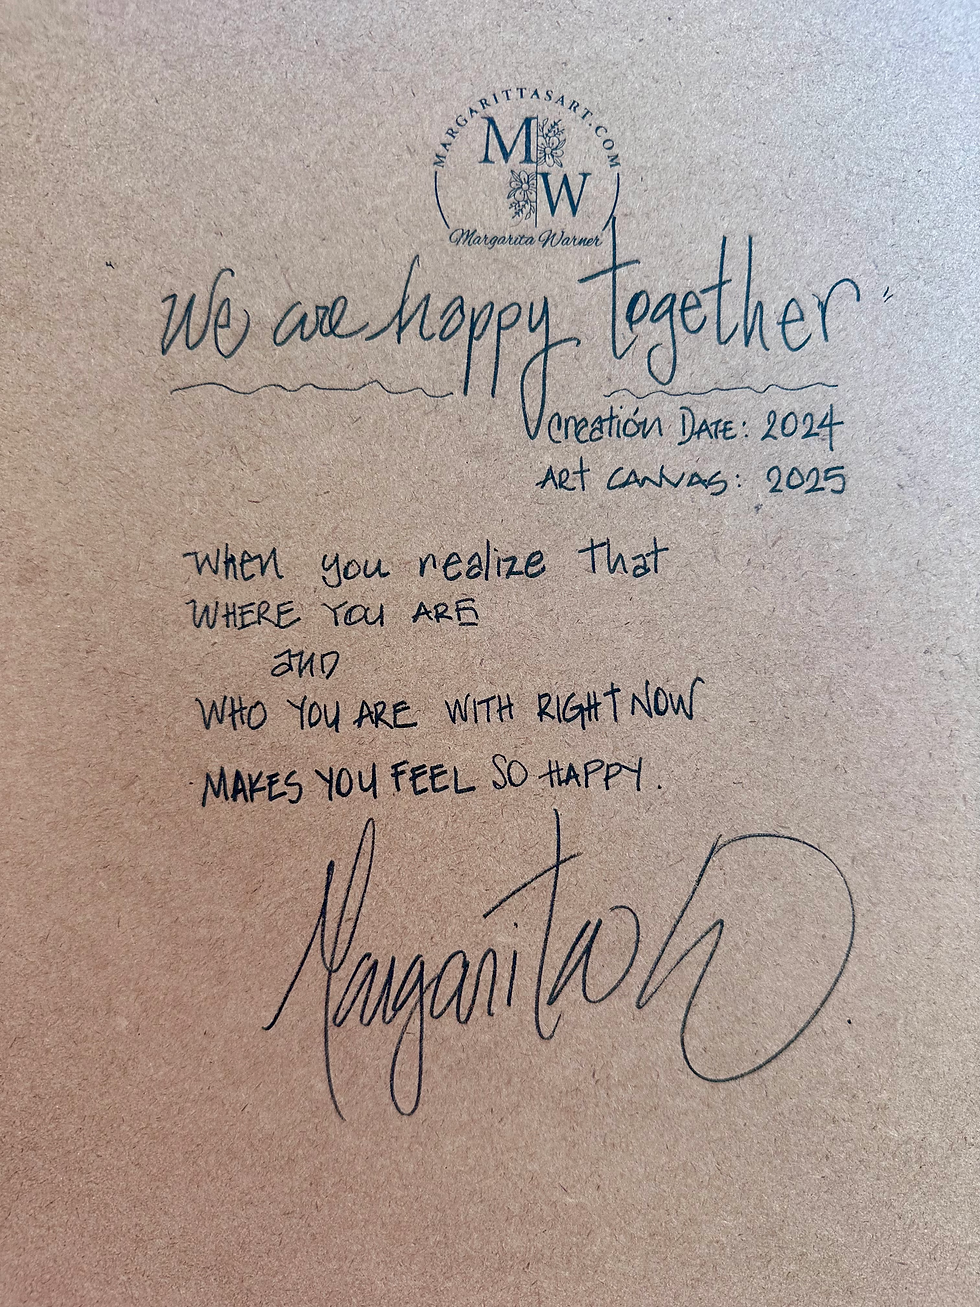 MARGARITTASART.COM
M
W
Margarita Warner
"We are happy together"
Creatión DATE: 2024
ART CANVAS: 2025
When you realize that
WHERE YOU ARE
and
WHO YOU ARE WITH RIGHT NOW
MAKES YOU FEEL SO HAPPY.
Margarita W